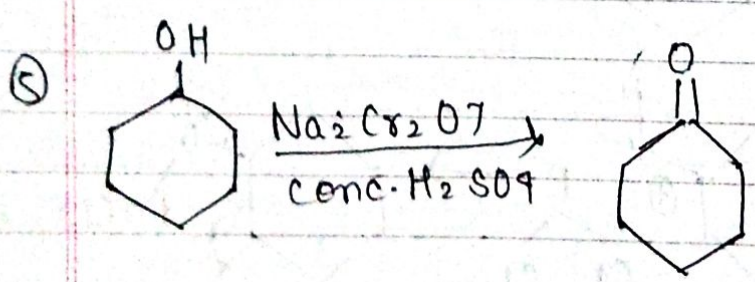 ⑤
OH
Na2 Cr2 O7
conc. H2 SO4
O